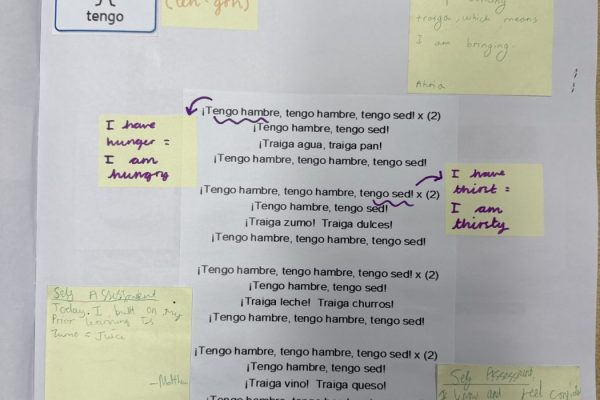 tengo
(ten-goh)
traiga, which means
I am bringing.
¡Tengo hambre, tengo hambre, tengo sed! x (2)
¡Tengo hambre, tengo sed!
¡Traiga agua, traiga pan!
¡Tengo hambre, tengo hambre, tengo sed!
I have
hunger =
I am
hungry
¡Tengo hambre, tengo hambre, tengo sed! x (2)
¡Tengo hambre, tengo sed!
¡Traiga zumo! Traiga dulces!
¡Tengo hambre, tengo hambre, tengo sed!
I have
thirst =
I am
thirsty
¡Tengo hambre, tengo hambre, tengo sed! x (2)
¡Tengo hambre, tengo sed!
¡Traiga leche! Traiga churros!
¡Tengo hambre, tengo hambre, tengo sed!
Self Assessment
Today I built on my
Prior learning
= Juice
¡Tengo hambre, tengo hambre, tengo sed! x (2)
¡Tengo hambre, tengo sed!
¡Traiga vino! Traiga queso!
¡Tengo hambre, tengo hambre, tengo sed!
Self Assessment
I know and feel